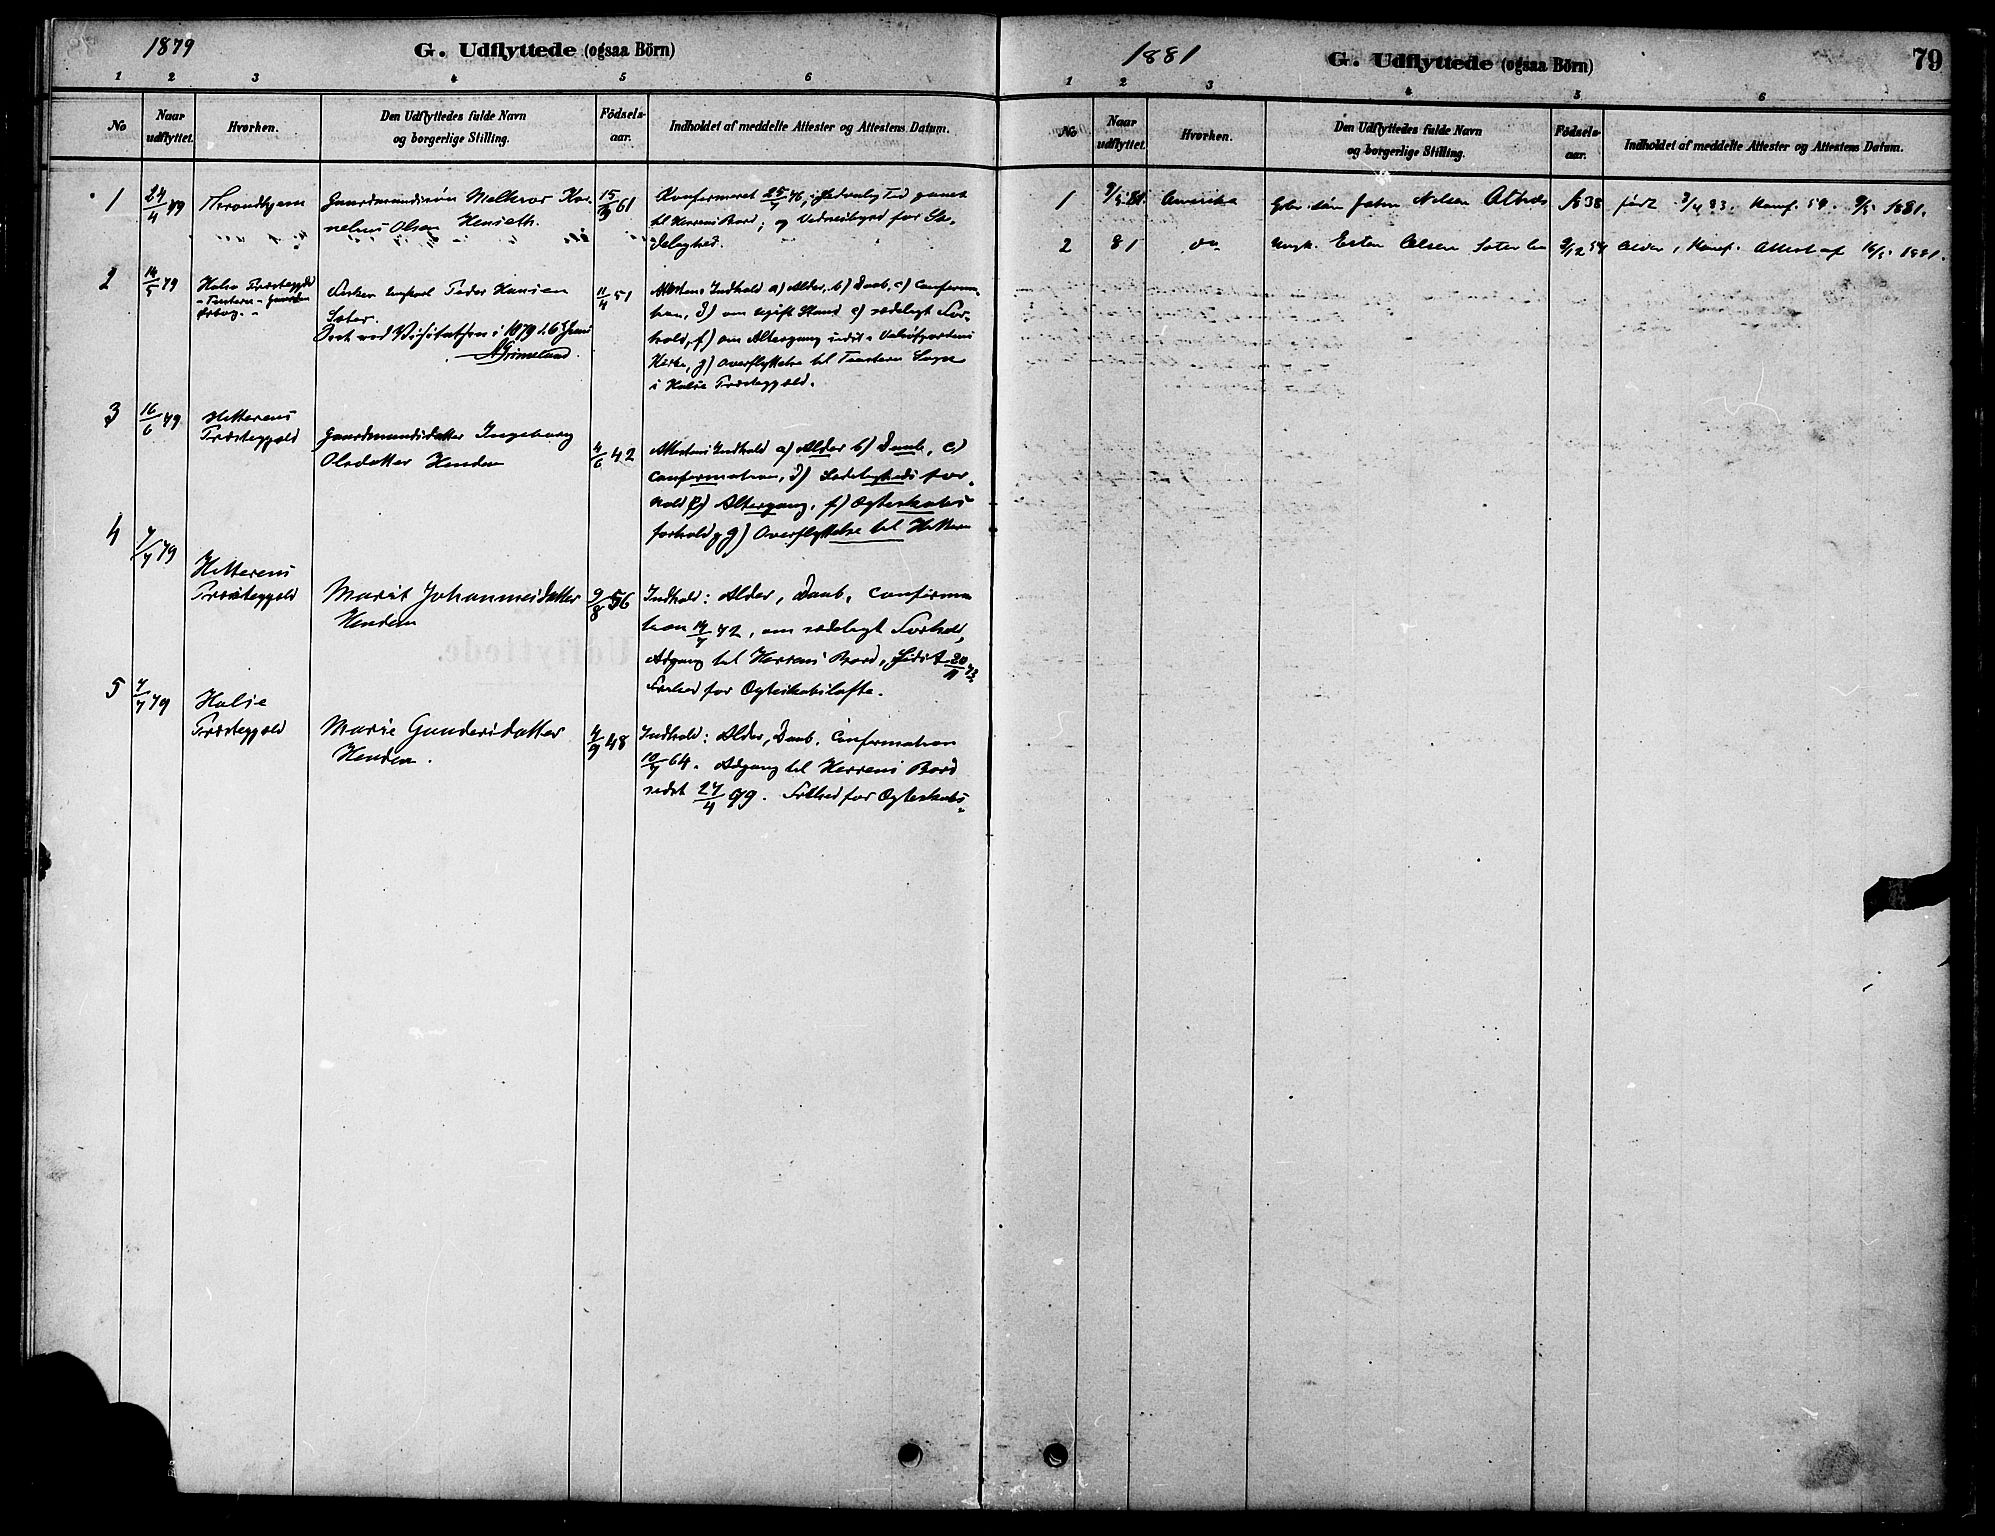 1879
G. Udflyttede (ogsaa Börn)
1 2 3 4 5 6
No
Naar udflyttet.
Hvorhen.
Den Udflyttedes fulde Navn og borgerlige Stilling.
Födsels-aar.
Indholdet af meddelte Attester og Attestens Datum.
1 24/4 79 Throndhjem
Gaardmandssøn Melkior Kor-
nelius Olsen
15/9 61
Confirmeret 25/7 76, sædvanlig Tid gaaet
til Herrens Bord; og Vidnesbyrd for Sæ-
delighed.
2 14/5 79
Halse Præstegjeld
Ungkarl Peder Hansen
Sæter.
Seet ved Visitatsen i 1879 d. 6 Juni
Grimelund.
11/4 51
Attestens Indhold a) Alder, b) Daab, c) Confirma-
tion, d) om ugift Stand e) sædeligt For-
hold, f) om Altergang sidst i Valsøfjordens
Kirke, g) Overflyttelse til Tustern Sogn
i Halse Præstegjeld.
3 16/6 79
Hitterens
Præstegjeld
Gaardmandsdatter Ingeborg
Olsdatter Henden
4/6 42
Attestens Indhold a) Alder b) Daab, c)
Confirmation, d) Sædeligheds for-
hold e) Altergang, f) Ægteskabs
forhold, g) Overflyttelse til Hittern
4 7/7 79
Hitterens
Præstegjeld
Marit Johannesdatter
Henden
9/8 56
Indhold: Alder, Daab, Confirma
tion 14/7 72, om sædeligt Forhold,
Adgang til Herrens Bord, sidst
Frihed for Ægteskabsløfte.
5 7/7 79
Halse
Præstegjeld
Marie Gundersdatter
Henden.
4/9 48
Indhold: Alder, Daab, Confirmation
10/7 64. Adgang til Herrens Bord
sidst 27/4 79. Frihed for Ægteskabs-
1881
G. Udflyttede (ogsaa Börn)
79
1 2 3 4 5 6
No
Naar udflyttet
Hvorhen.
Den Udflyttedes fulde Navn og borgerlige Stilling.
Födsels-aar.
Indholdet af meddelte Attester og Attestens Datum.
1 9/5 81 Amerika Nilsen 38 født Konf. 54. 9/5 1881.
2 81 do Ungk. Esten Olsen Alder, Konf. Attest af 16/5 1881.